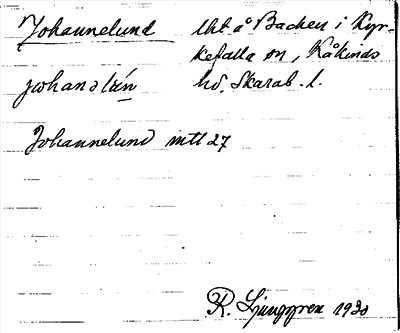 Johannelund lht å Backen i Kyr-
kefalla sn, Kåkinds
hd. Skarab. l.
Johannelund mtl 27
R. Ljunggren 1930